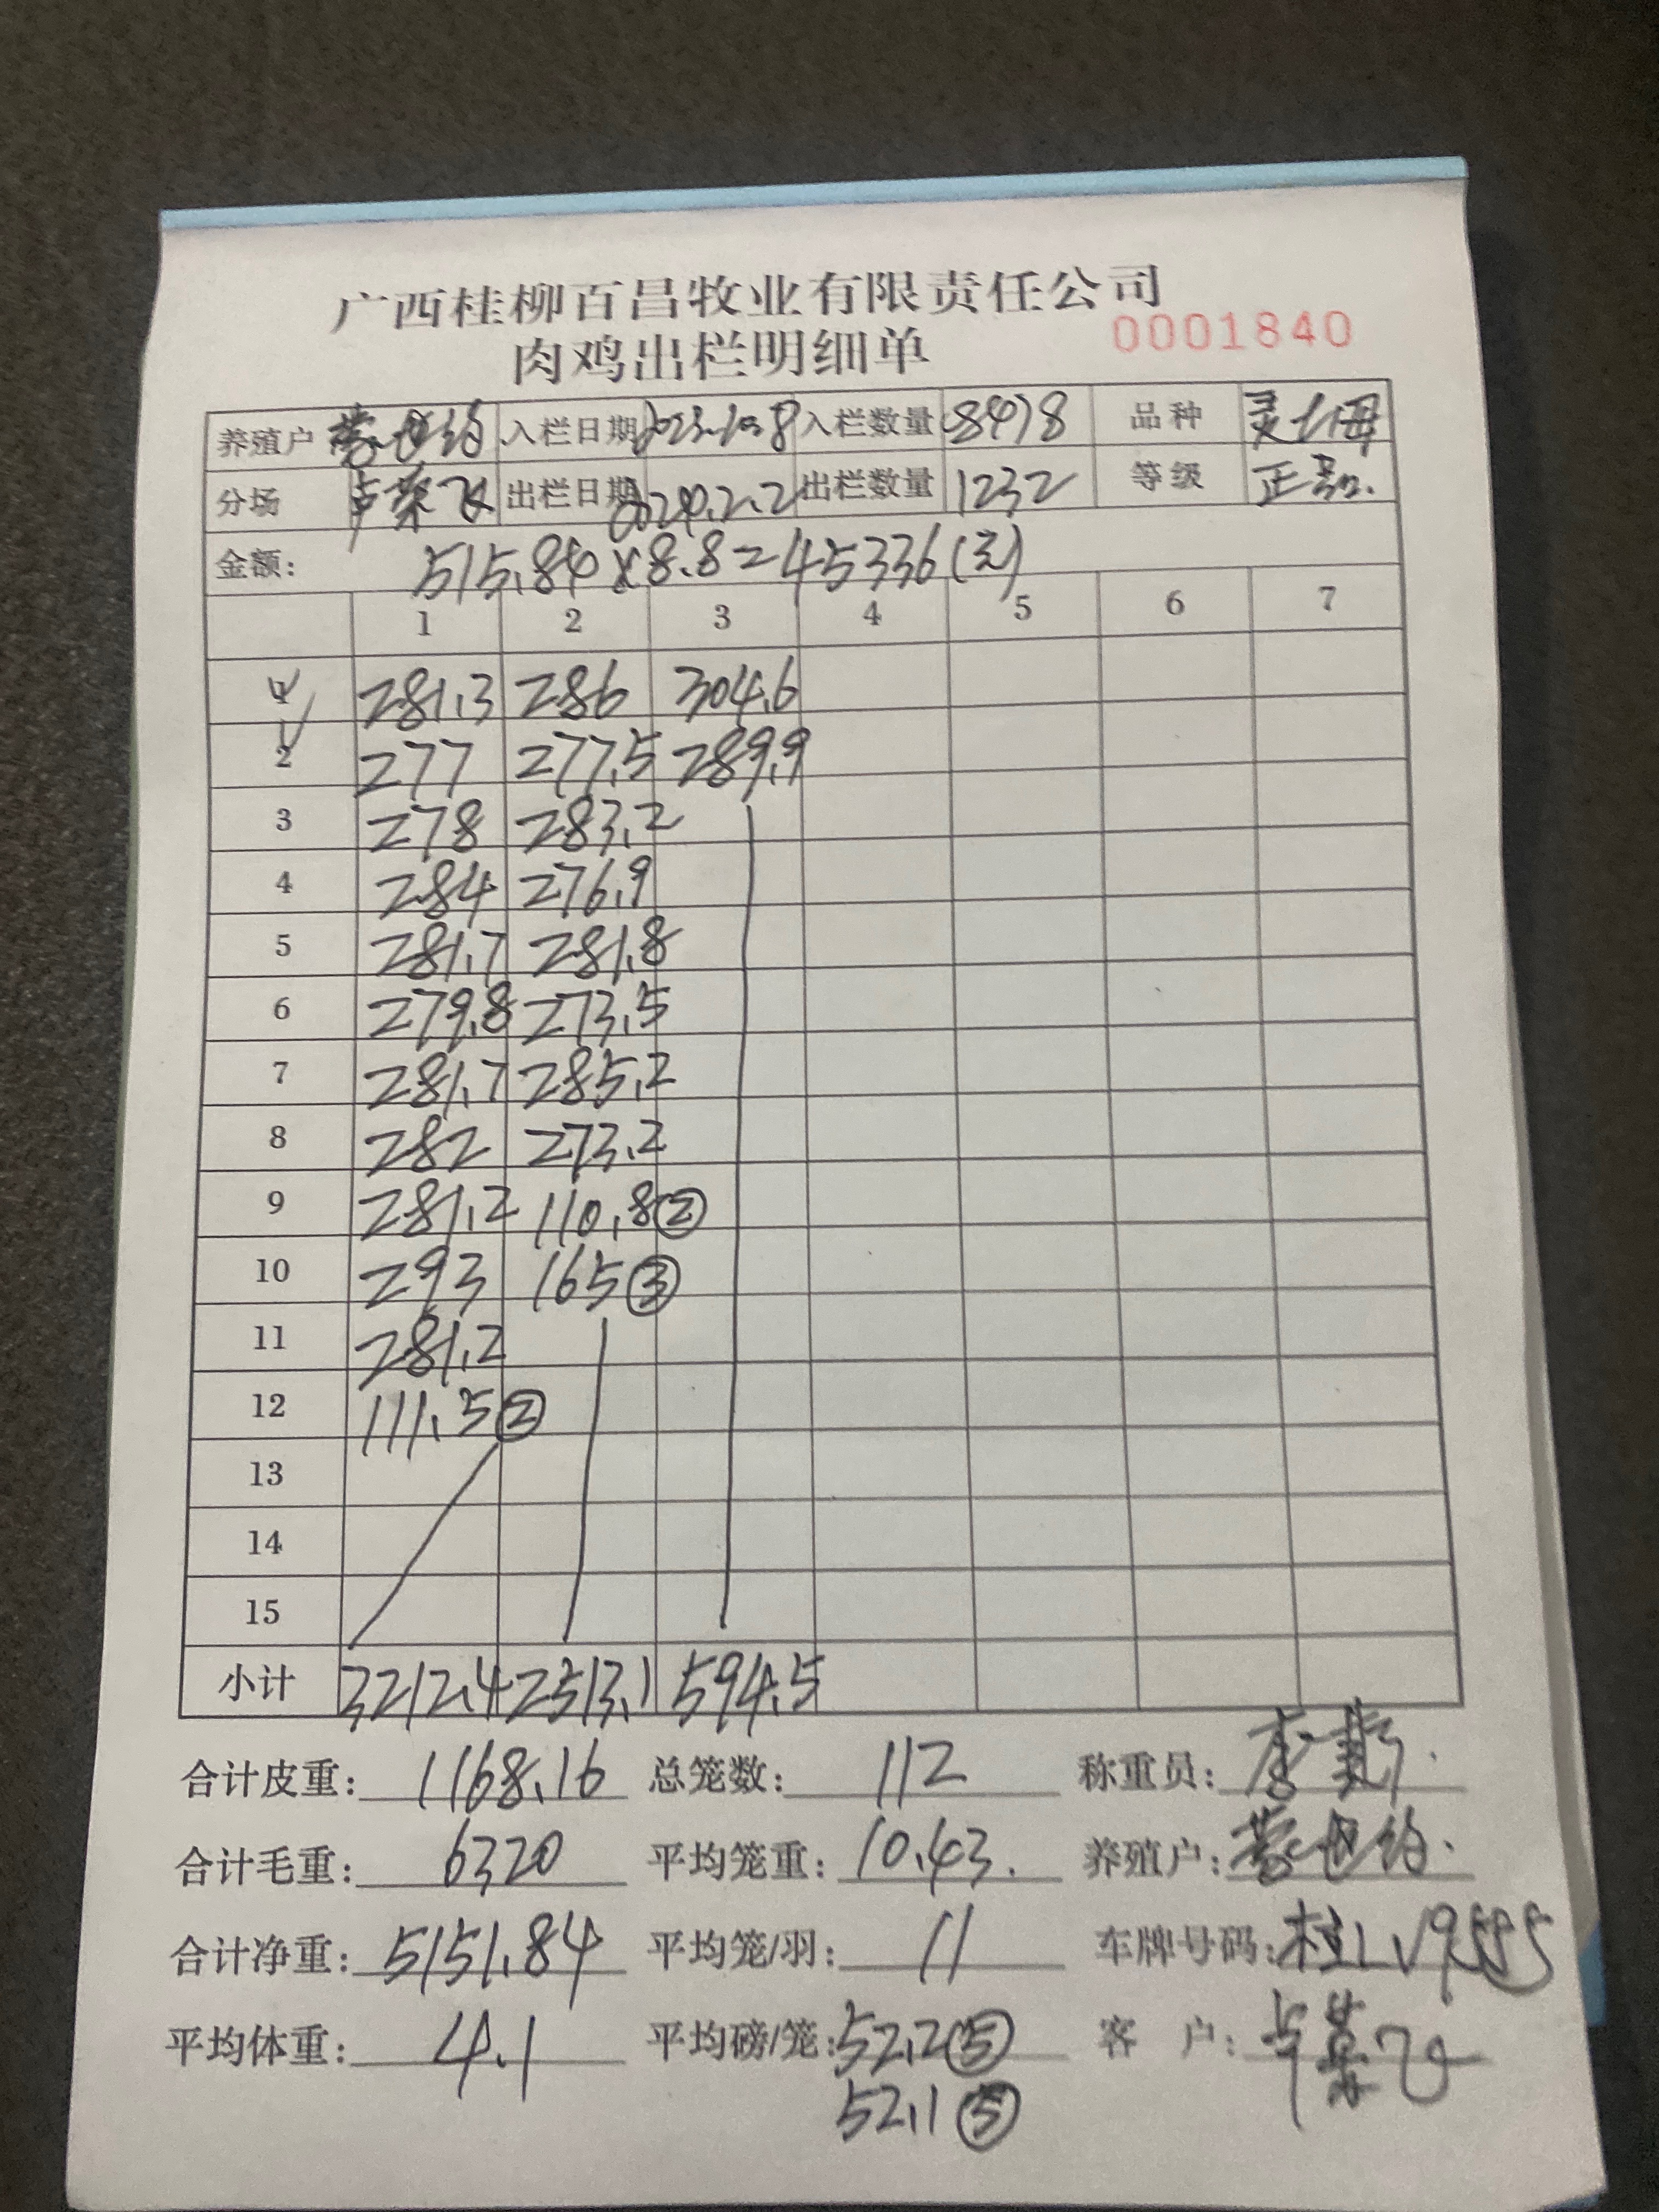 广西桂柳百昌牧业有限责任公司
肉鸡出栏明细单 0001840
养殖户 入栏日期 2023.10.8 入栏数量 8478 品种
分场 出栏日期 2024.2.2 出栏数量 1232 等级 正
金额: 515.84×8.8=45336(元)
1 2 3 4 5 6 7
1 281.3 286 304.6
2 277 277.5 289.9
3 278 283.2
4 284 276.9
5 281.7 281.8
6 279.8 273.5
7 281.7 285.2
8 282 273.2
9 281.2 110.8②
10 293 165③
11 281.2
12 111.5②
13
14
15
小计 3212.4 2513.1 594.5
合计皮重: 1168.16 总笼数: 112 称重员: 李
合计毛重: 6320 平均笼重: 10.43. 养殖户:
合计净重: 5151.84 平均笼/羽: 11 车牌号码: 桂LV9555
平均体重: 4.1 平均磅/笼: 52.2⑤ 客 户:
52.1⑤